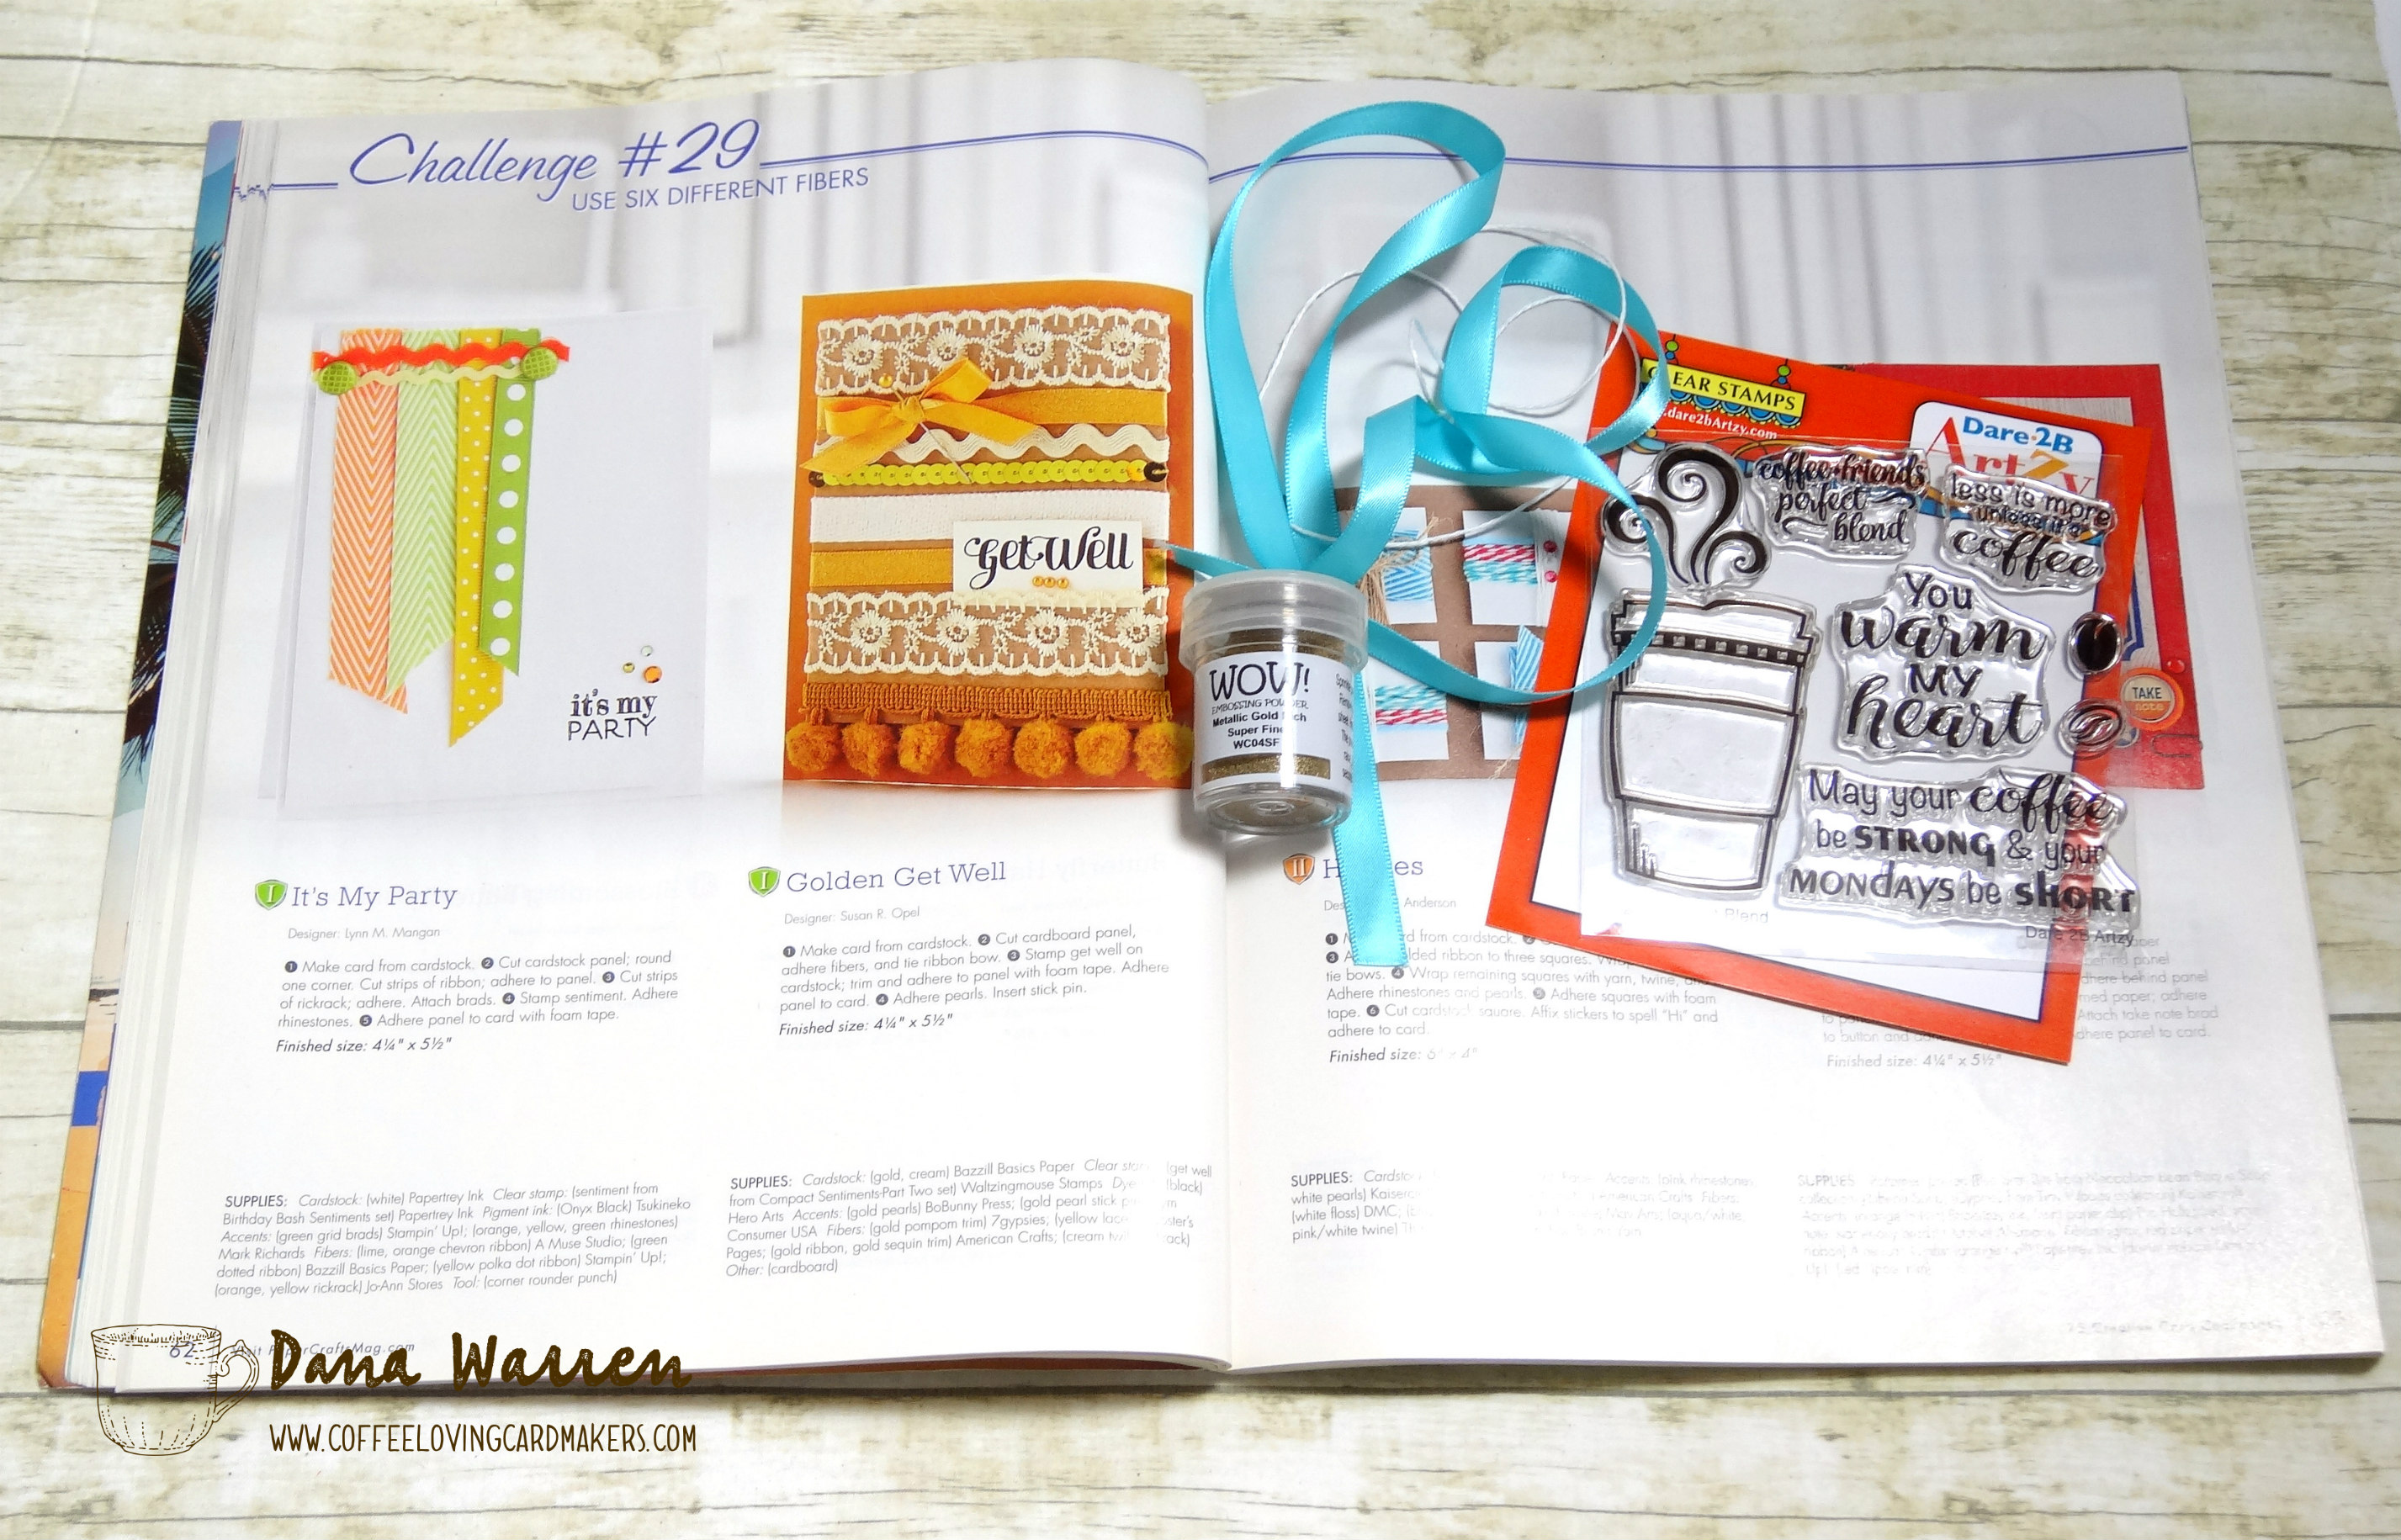 Challenge #29
USE SIX DIFFERENT FIBERS
it's my
PARTY
Get Well
I It's My Party
Designer: Lynn M. Mangan
1 Make card from cardstock. 2 Cut cardstock panel; round
one corner. Cut strips of ribbon; adhere to panel. 3 Cut strips
of rickrack; adhere. Attach brads. 4 Stamp sentiment. Adhere
rhinestones. 5 Adhere panel to card with foam tape.
Finished size: 4¼" x 5½"
SUPPLIES: Cardstock: (white) Papertrey Ink Clear stamp: (sentiment from
Birthday Bash Sentiments set) Papertrey Ink Pigment ink: (Onyx Black) Tsukineko
Accents: (green grid brads) Stampin' Up!; (orange, yellow, green rhinestones)
Mark Richards Fibers: (lime, orange chevron ribbon) A Muse Studio; (green
dotted ribbon) Bazzill Basics Paper; (yellow polka dot ribbon) Stampin' Up!;
(orange, yellow rickrack) Jo-Ann Stores Tool: (corner rounder punch)
I Golden Get Well
Designer: Susan R. Opel
1 Make card from cardstock. 2 Cut cardboard panel,
adhere fibers, and tie ribbon bow. 3 Stamp get well on
cardstock; trim and adhere to panel with foam tape. Adhere
panel to card. 4 Adhere pearls. Insert stick pin.
Finished size: 4¼" x 5½"
SUPPLIES: Cardstock: (gold, cream) Bazzill Basics Paper Clear (get well
from Compact Sentiments-Part Two set) Waltzingmouse Stamps Dye (black)
Hero Arts Accents: (gold pearls) BoBunny Press; (gold pearl stick
Consumer USA Fibers: (gold pompom trim) 7gypsies; (yellow
Pages; (gold ribbon, gold sequin trim) American Crafts; (cream
Other: (cardboard)
62
WOW!
EMBOSSING POWDER
Metallic Gold Rich
Super Fine
WC04SF
CLEAR STAMPS
dare2bArtzy.com
Dare 2B
Artzy
coffee+friends
perfect
blend
less is more
unless it's
coffee
You
warm
MY
heart
May your coffee
be STRONG & your
MONDAYS be SHORT
Blend
Dare 2B Artzy
TAKE
note
II
Anderson
from cardstock.
ribbon to three squares.
tie bows. 4 Wrap remaining squares with yarn, twine, and
Adhere rhinestones and pearls. 5 Adhere squares with foam
tape. 6 Cut cardstock square. Affix stickers to spell "Hi" and
adhere to card.
Finished size: 6" x 4"
SUPPLIES: Accents: (pink rhinestones,
white pearls) American Crafts Fibers:
(white floss) DMC; (aqua/white,
pink/white twine)
paper
adhere behind panel
paper; adhere
Attach take note brad
to button and adhere panel to card.
Finished size: 4¼" x 5½"
SUPPLIES:
Dana Warren
WWW.COFFEELOVINGCARDMAKERS.COM